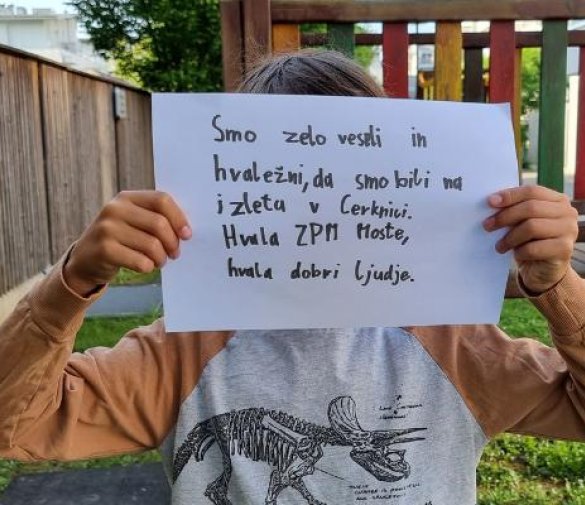 Smo zelo veseli in
hvaležni, da smo bili na
izletu v Cerknici.
Hvala ZPM Moste,
hvala dobri ljudje.